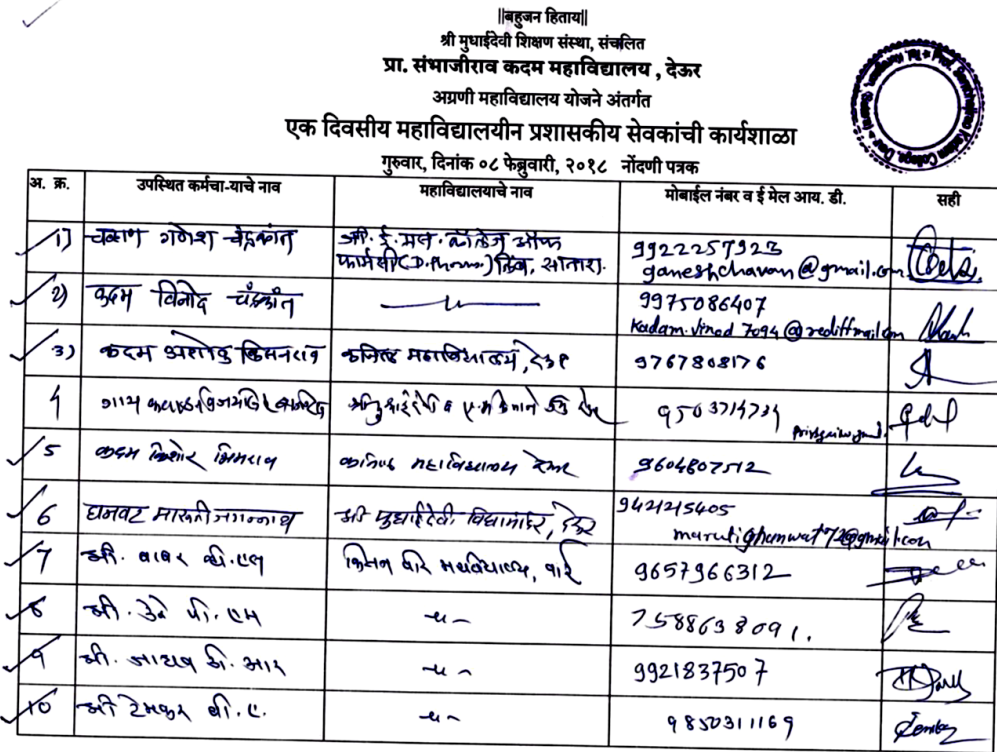 ||बहुजन हिताय||
श्री मुधाईदेवी शिक्षण संस्था, संचलित
प्रा. संभाजीराव कदम महाविद्यालय , देऊर
अग्रणी महाविद्यालय योजने अंतर्गत
एक दिवसीय महाविद्यालयीन प्रशासकीय सेवकांची कार्यशाळा
गुरुवार, दिनांक ०८ फेब्रुवारी, २०१८ नोंदणी पत्रक
अ. क्र. उपस्थित कर्मचा-याचे नाव महाविद्यालयाचे नाव मोबाईल नंबर व ई मेल आय. डी. सही
1) चव्हाण गणेश चंद्रकांत ऑफ 9922257923
फार्मसी (D.Pharm.) सातारा. ganeshchavan@gmail.com
2) कदम विनोद चंद्रकांत —॥— 9975086407
kadam.vinod7094@rediffmail.com
3) कदम अशोक किसनराव कनिष्ठ महाविद्यालय, देऊर 9767808176
4
5 कदम किशोर भिमराव कनिष्ठ महाविद्यालय देऊर 9604807512
6 घनवट मारुती जगन्नाथ श्री मुधाईदेवी विद्यामंदिर, देऊर 9421215405
marutighanwat72@gmail.com
7 श्री. बाबर व्ही.एल किसन वीर महाविद्यालय, वाई 9657966312
8 श्री. पी. एम -॥- 7588638091.
9 श्री. जाधव डी. आर -॥- 9921837507
10 श्री टेमकर बी. ए. -॥- 9850311169